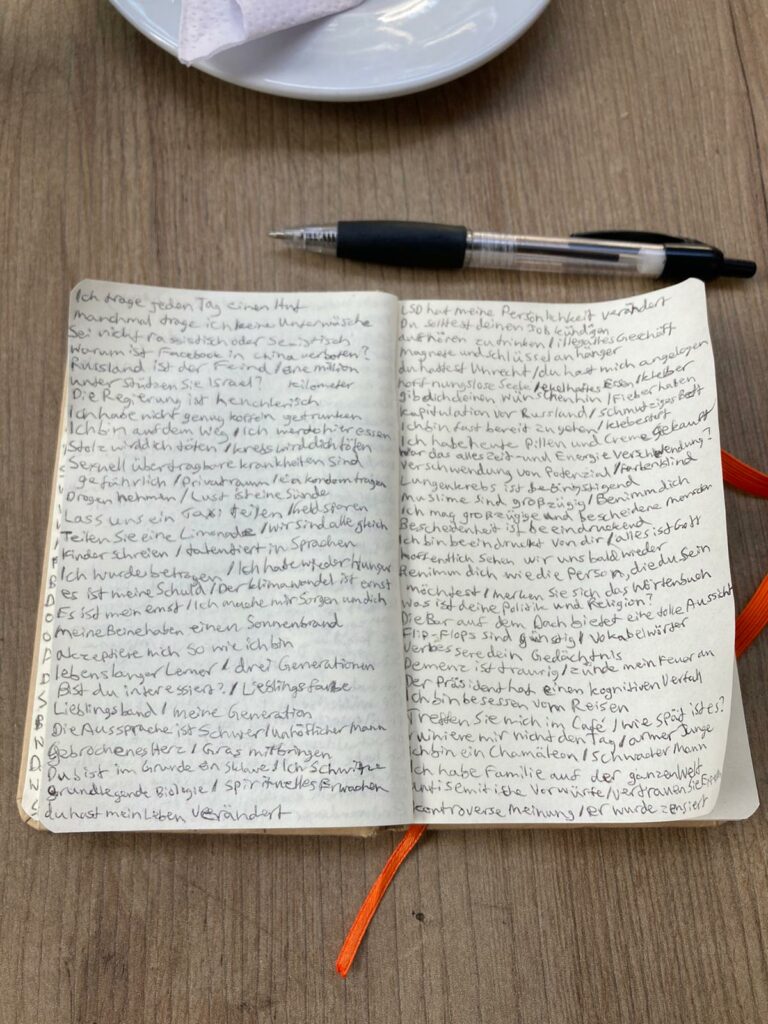 Ich trage jeden Tag einen Hut
manchmal trage ich keine Unterwäsche
Sei nicht rassistisch oder Sexistisch
Warum ist Facebook in China verboten?
Russland ist der Feind / eine million
unter Stützen Sie Israel? kilometer
Die Regierung ist heuchlerisch
Ich habe nicht genug koffein getrunken
Ich bin auf dem Weg / Ich werde hier essen
Stolz wird dich töten / kress wird dich töten
Sexuell übertragbare krankheiten sind
gefährlich / Privatraum / Ein kondom tragen
Drogen nehmen / Lust ist eine Sünde
Lass uns ein Taxi teilen / held
Teilen Sie eine Limonade / wir sind alle gleich
Kinder schreien / talentiert in Sprachen
Ich wurde betrogen / Ich habe wieder hunger
es ist meine Schuld / Der klimawandel ist ernst
Es ist mein ernst / Ich mache mir Sorgen um dich
meine Beine haben einen Sonnenbrand
akzeptiere mich so wie ich bin
lebenslanger Lerner / drei Generationen
Bist du interessiert? / Lieblings farbe
Lieblingsband / meine Generation
Die Aussprache ist Schwer / unhöflicher Mann
gebrochenes Herz / Gras mitbringen
Du bist im Grunde ein Sklave / Ich Schwitze
grundlegende Biologie / Spirituelles Erwachen
du hast mein Leben verändert
LSD hat meine Persönlichkeit verändert
Du solltest deinen Job kündigen
aufhören zu trinken / illegales Geschäft
magnete und schlüssel anhänger
du hattest Unrecht / du hast mich angelogen
hoffnungslose Seele / ekelhaftes Essen / kleber
gib dich deinen wünschen hin / Fieber haben
kapitulation vor Russland / schmutziges Bett
Ich bin fast bereit zu gehen / klebestift
Ich habe heute Pillen und Creme gekauft
war das alles Zeit- und Energie verschwendung?
verschwendung von Potenzial / farbenblind
Lungenkrebs ist beängstigend
muslime sind großzügig / Benimm dich
Ich mag großzügige und bescheidene menschen
Bescheidenheit ist beeindruckend
Ich bin beeindruckt von dir / alles ist Gott
hoffentlich sehen wir uns bald wieder
Benimm dich wie die Person, die du Sein
möchtest / merken Sie sich das Wörterbuch
was ist deine Politik und Religion?
Die Bar auf dem Dach bietet eine tolle Aussicht
Flip-Flops sind günstig / Vokabelwörter
Verbessere dein Gedächtnis
Demenz ist traurig / zünde mein Feuer an
Der Präsident hat einen kognitiven Verfall
Ich bin besessen vom Reisen
Treffen Sie mich im Café / wie spät ist es?
ruiniere mir nicht den Tag / armer Junge
Ich bin ein Chamäleon / schwacher Mann
Ich habe Familie auf der ganzen Welt
antisemitische Vorwürfe / vertrauen Sie
kontroverse Meinung / er wurde zensiert